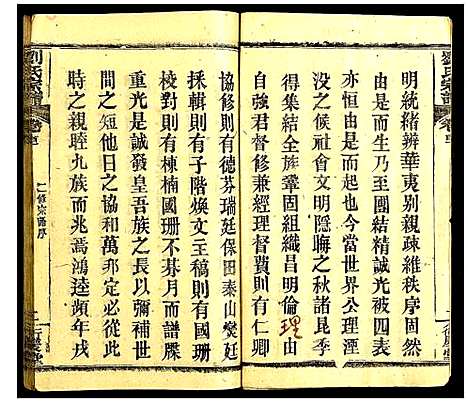 劉氏宗譜
明統緒辨華夷別親疎維秩序固然
由是而生乃至團結精誠光被四表
亦恒由是而起也今當世界公理湮
沒之候社會文明隱晦之秋諸昆季
得集結全族鞏固組織昌明倫理由
宗君督修兼經理督費則有仁卿
協修則有德芬瑞廷保田泰山爕廷
採輯則有子階煥文主稿則有國珊
校對則有棟楠國珊不朞月而譜牒
重光是誠發皇吾族之長以彌補世
間之短他日之協和萬邦定必從此
時之親睦九族而兆焉鴻逵頻年戎
二修宗譜序
劉氏宗譜